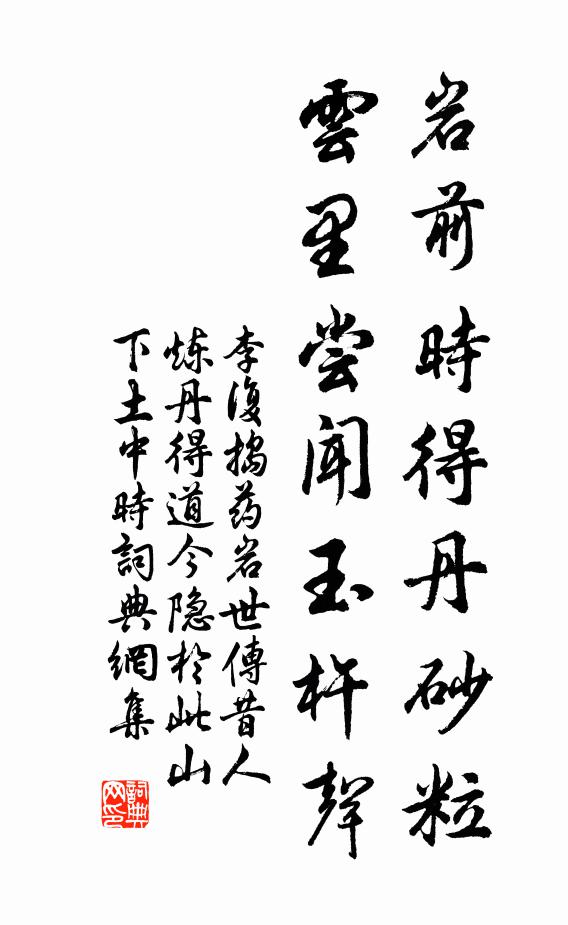 岩前時得丹砂粒
雲里尝闻玉杵聲
李復捣药岩世傳昔人
炼丹得道今隐於此山
下土中時詞典網集
詞典网印